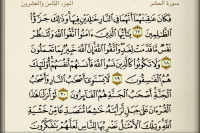 سورة الحشر
الجزء الثامن والعشرون
فَكَانَ عَاقِبَتَهُمَا أَنَّهُمَا فِي النَّارِ خَالِدَيْنِ فِيهَا وَذَٰلِكَ جَزَٰٓؤُا
الظَّالِمِينَ ١٧ يَا أَيُّهَا الَّذِينَ ءَامَنُوا اتَّقُوا اللَّهَ وَلْتَنظُرْ نَفْسٌ
مَّا قَدَّمَتْ لِغَدٍ وَاتَّقُوا اللَّهَ إِنَّ اللَّهَ خَبِيرٌ بِمَا تَعْمَلُونَ
١٨ وَلَا تَكُونُوا كَالَّذِينَ نَسُوا اللَّهَ فَأَنسَاهُمْ أَنفُسَهُمْ أُولَٰئِكَ
هُمُ الْفَاسِقُونَ ١٩ لَا يَسْتَوِي أَصْحَابُ النَّارِ وَأَصْحَابُ
الْجَنَّةِ أَصْحَابُ الْجَنَّةِ هُمُ الْفَائِزُونَ ٢٠ لَوْ أَنزَلْنَا هَٰذَا
الْقُرْءَانَ عَلَىٰ جَبَلٍ لَّرَأَيْتَهُ خَاشِعًا مُّتَصَدِّعًا مِّنْ خَشْيَةِ
اللَّهِ وَتِلْكَ الْأَمْثَالُ نَضْرِبُهَا لِلنَّاسِ لَعَلَّهُمْ يَتَفَكَّرُونَ